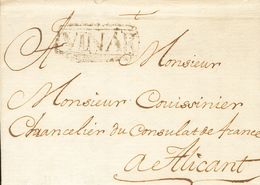 A Monsieur
Monsieur Couissinier
Chancelier du Consulat de france
a Alicant